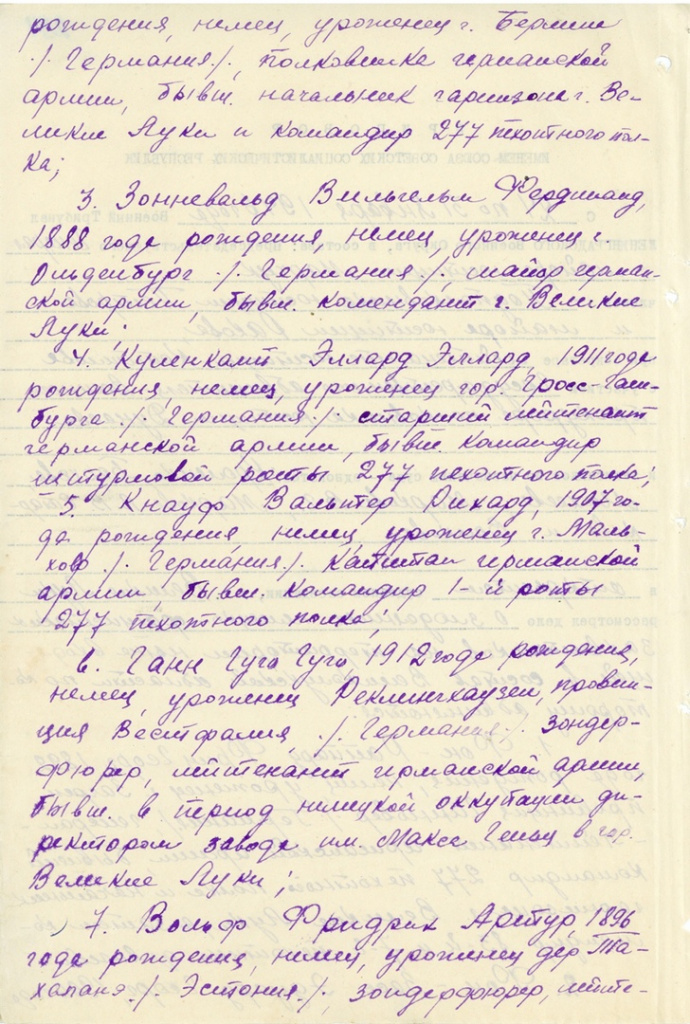 рождения, немец, уроженец г. Берлин
./. Германия ./., полковника германской
армии, бывш. начальник гарнизона г. Ве-
ликие Луки и командир 277 пехотного пол-
ка;
3. Зонневальд Вильгельм Фердинанд,
1888 года рождения, немец, уроженец г.
Ольденбург ./. Германия ./. майор герман-
ской армии, бывш. комендант г. Великие
Луки;
4. Куленкамп Эллард Эллард, 1911 года
рождения, немец, уроженец гор. Гросс-Гам-
бурга ./. Германия ./. старший лейтенант
германской армии, бывш. командир
штурмовой роты 277 пехотного полка;
5. Кнауф Вальтер Рихард, 1907 го-
да рождения, немец, уроженец г. Маль-
хов ./. Германия ./. Капитан германской
армии, бывш. командир 1-й роты
277 пехотного полка;
6. Ганн Гуго Гуго, 1912 года рождения,
немец, уроженец Реклингхаузен, провин-
ция Вестфалия, ./. Германия ./. зондер-
фюрер, лейтенант германской армии,
бывш. в период немецкой оккупации ди-
ректором завода им. Макса Гельц в гор.
Великие Луки;
7. Вольф Фридрих Артур, 1896
года рождения, немец, уроженец дер. Та-
халанэ ./. Эстония ./., зондерфюрер, лейте-